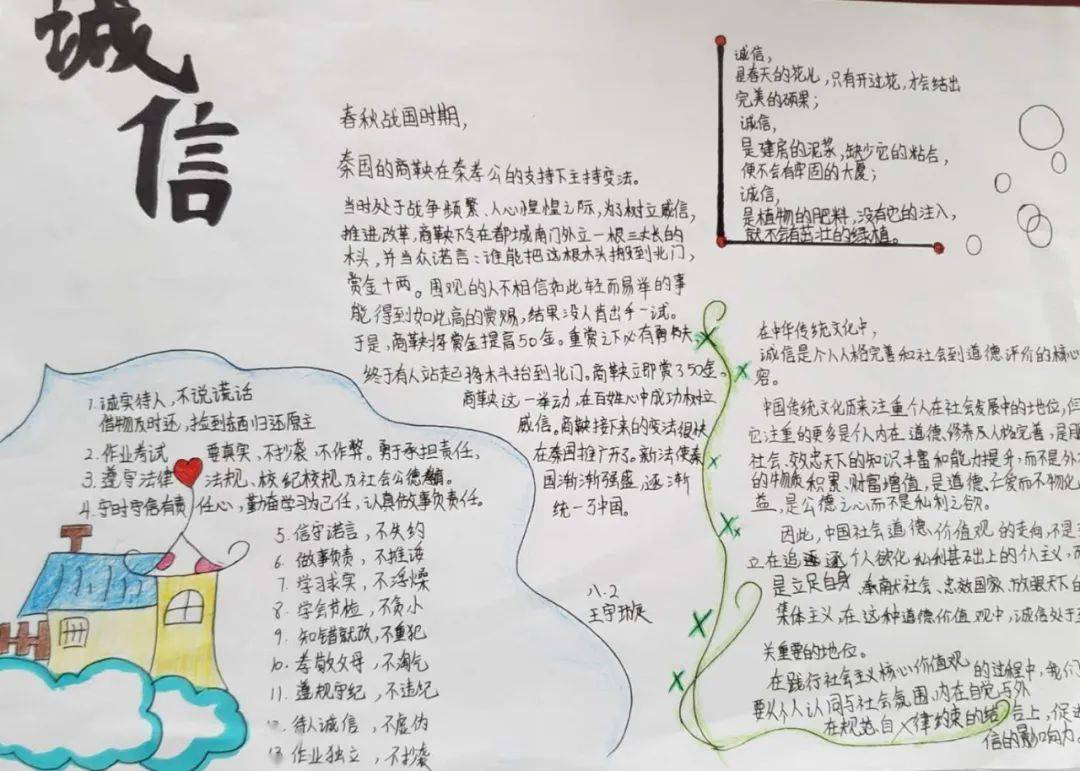 诚
信
春秋战国时期,
秦国的商鞅在秦孝公的支持下主持变法。
当时处于战争频繁、人心惶惶之际,为了树立威信,
推进改革,商鞅下令在都城南门外立一根三丈长的
木头,并当众诺言:谁能把这根木头搬到北门,
赏金十两。围观的人不相信如此轻而易举的事
能得到如此高的赏赐,结果没人肯出手一试。
于是,商鞅将赏金提高50金。重赏之下必有勇夫,
终于有人站起将木头抬到北门。商鞅立即赏了50金。
商鞅这一举动,在百姓心中成功树立
威信。商鞅接下来的变法很快
在秦国推广开了。新法使秦
国渐渐强盛,逐渐
统一了中国。
八.2
王宇
诚信,
是春天的花儿,只有开过花,才会结出
完美的硕果;
诚信,
是建房的泥浆,缺少它的粘合,
便不会有牢固的大厦;
诚信,
是植物的肥料,没有它的注入,
就不会有茁壮的绿植。
1.诚实待人,不说谎话
借物及时还,捡到东西归还原主
2.作业考试 要真实,不抄袭、不作弊。勇于承担责任,
3.遵守法律 法规、校纪校规及社会公德。
4.守时守信有责任心,勤奋学习为己任,认真做事负责任。
5.信守诺言,不失约
6.做事负责,不推诿
7.学习求实,不浮燥
8.学会节检,不贪小
9.知错就改,不重犯
10.孝敬父母,不淘气
11.遵规守纪,不违纪
待人诚信,不虚伪
13.作业独立,不抄袭
在中华传统文化中,
诚信是个人人格完善和社会到道德评价的核心
容。
中国传统文化历来注重个人在社会发展中的地位,但
它注重的更多是个人内在道德、修养及人格完善,是服
社会、效忠天下的知识丰富和能力提升,而不是外
的物质积累、财富增值,是道德、仁爱而不物化
益,是公德之心而不是私利之欲。
因此,中国社会道德、价值观的走向,不是
立在追逐个人欲化私利基础上的个人主义,而
是立足自身、奉献社会、忠效国家、放眼天下的
集体主义,在这种道德价值观中,诚信处于至
关重要的地位。
在践行社会主义核心价值观的过程中,我们
要从个人认同与社会氛围、内在自觉与外
在规范、自律约束的结合上,促进
信的影响力。